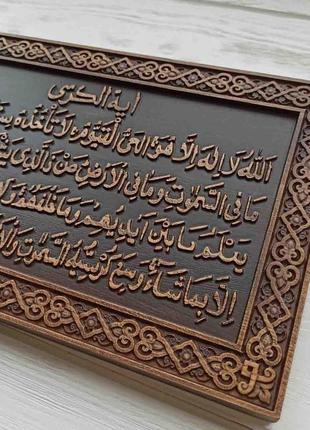 اية الكرسي
الله لا إله إلا هو الحي القيوم لا تأخذه
ما في السموت وما في الارض من ذا الذي
يعلم ما بين ايديهم وما خلفهم و
الا بما شاء وسع كرسيه السموت وا